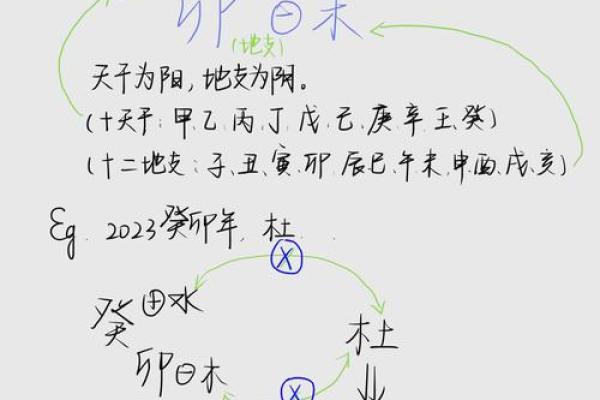 卯⊖木
(地支)
天干为阳,地支为阴。
(十天干:甲、乙、丙、丁、戊、己、庚、辛、壬、癸)
(十二地支:子、丑、寅、卯、辰、巳、午、未、申、酉、戌、亥)
Eg. 2023癸卯年,杜..
X
癸⊕水
杜
卯⊖木
X